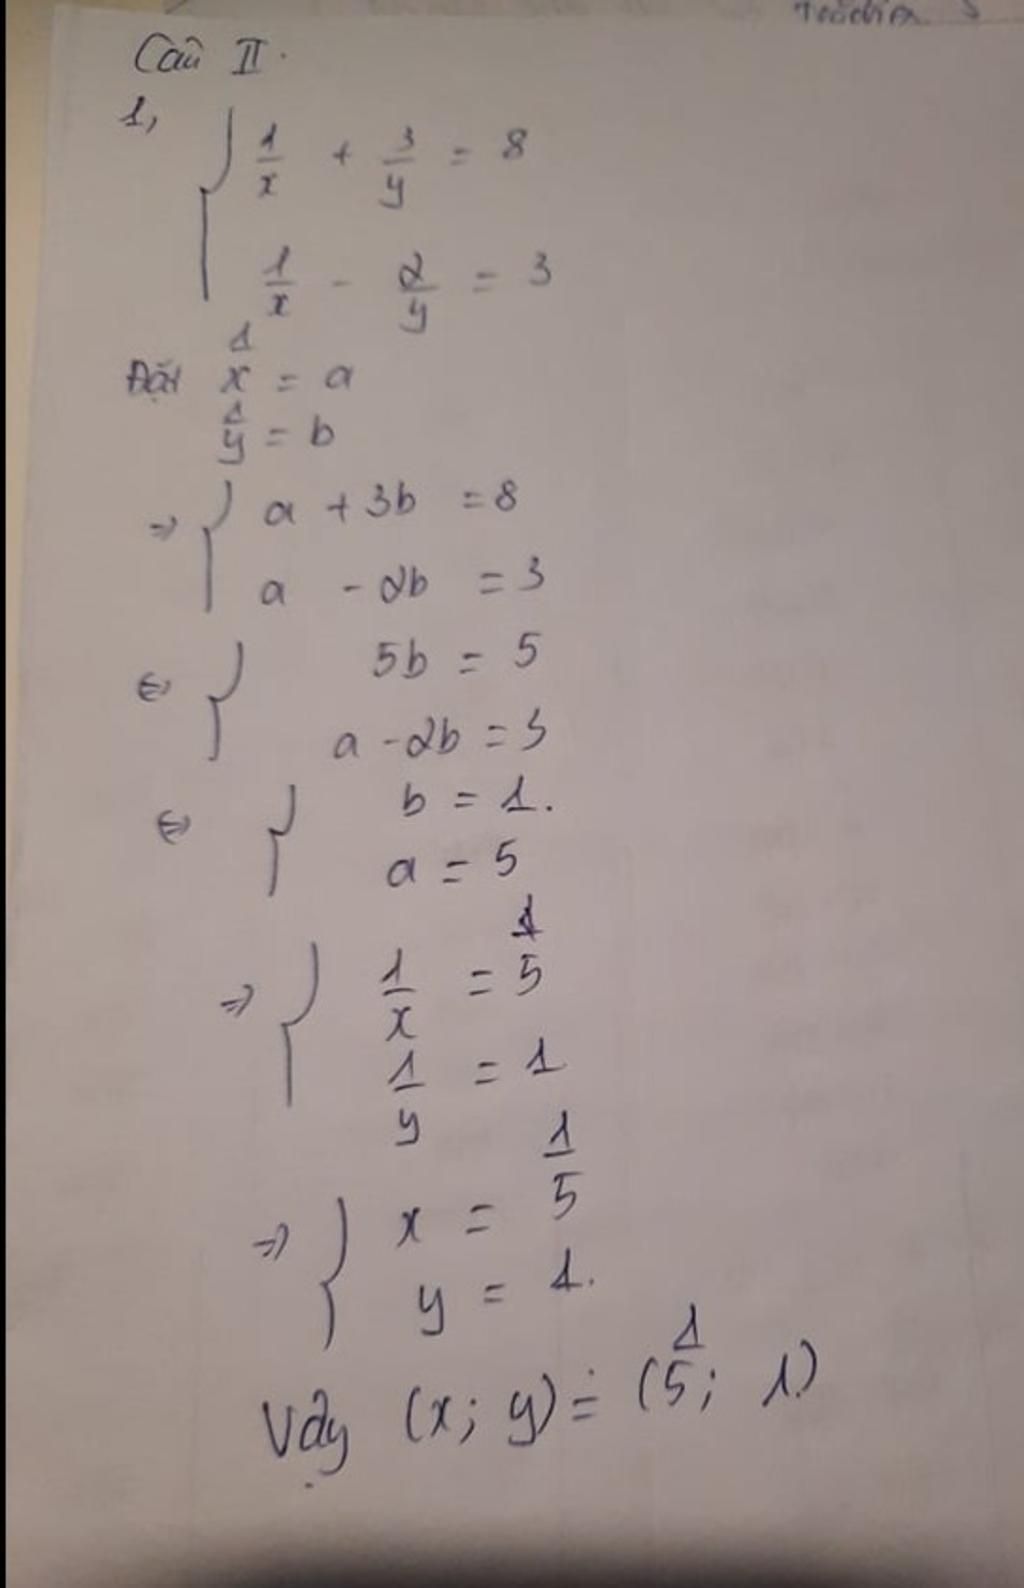 Câu II.
1,
1/x + 3/y = 8
1/x - 2/y = 3
Đặt 1/x = a
1/y = b
=> a + 3b = 8
a - 2b = 3
<=> 5b = 5
a - 2b = 3
<=> b = 1.
a = 5
=> 1/x = 1/5
1/y = 1
=> x = 1/5
y = 1.
Vậy (x; y) = (1/5; 1)